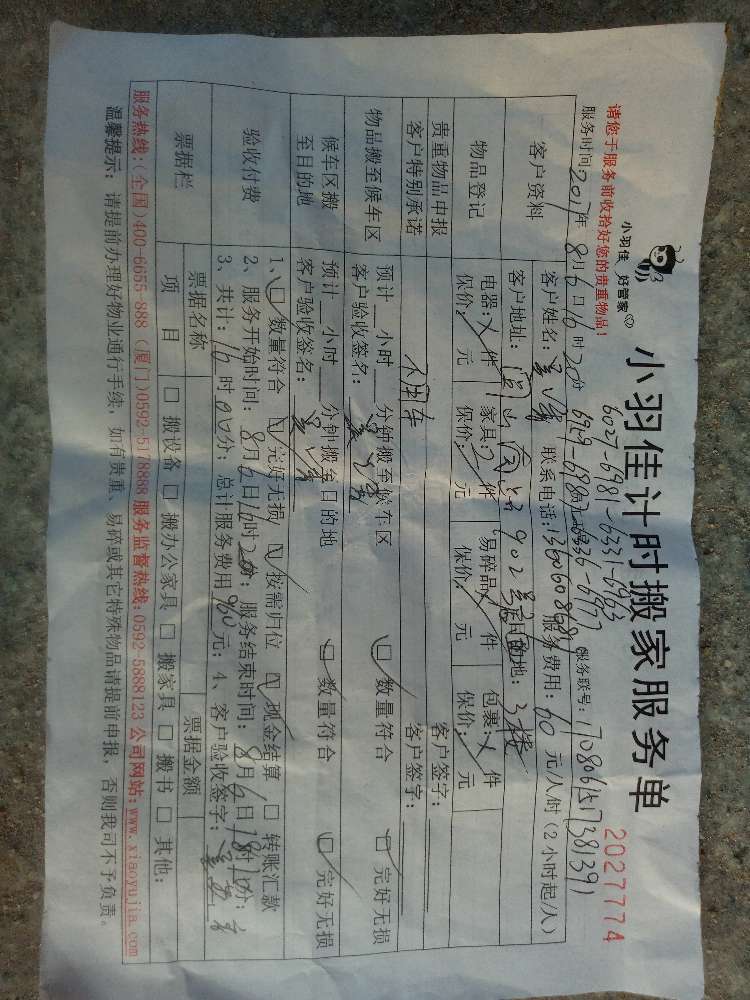 小羽佳计时搬家服务单
2027774
小羽佳 好管家
请您于服务前收拾好您的贵重物品!
6027-6981-6331-6963
服务时间 2017年 8月6日16时20分
服务联号:
客户资料
客户姓名: 联系电话: 服务费用:60 元/人/时 (2小时起/人)
客户地址: 902 目的地: 3楼
物品登记
电器: 件 家具: 件 易碎品: 件 包裹: 件
保价: 元 保价: 元 保价: 元 保价: 元
贵重物品申报
客户签字:
客户特别承诺
客户签字:
物品搬至候车区
预计 小时 分钟搬至候车区 数量符合 完好无损
客户验收签名:
候车区搬至目的地
预计 小时 分钟搬至目的地 数量符合 完好无损
客户验收签名:
验收付费
1、 数量符合 完好无损 按需归位 现金结算 转账汇款
2、服务开始时间: 8月6日16时20分; 服务结束时间: 8月6日18时10分;
3、共计: 时 分; 总计服务费用 960 元; 4、客户验收签字:
票据栏
票据名称 票据金额
项 目 搬设备 搬办公家具 搬家具 搬书 其他:
服务热线:(全国)400-6655-888 (厦门)0592-5178888 服务监督热线:0592-5888123 公司网站:www.xiaoyujia.com
温馨提示: 请提前办理好物业通行手续, 如有贵重、易碎或其它特殊物品请提前申报, 否则我司不予负责。